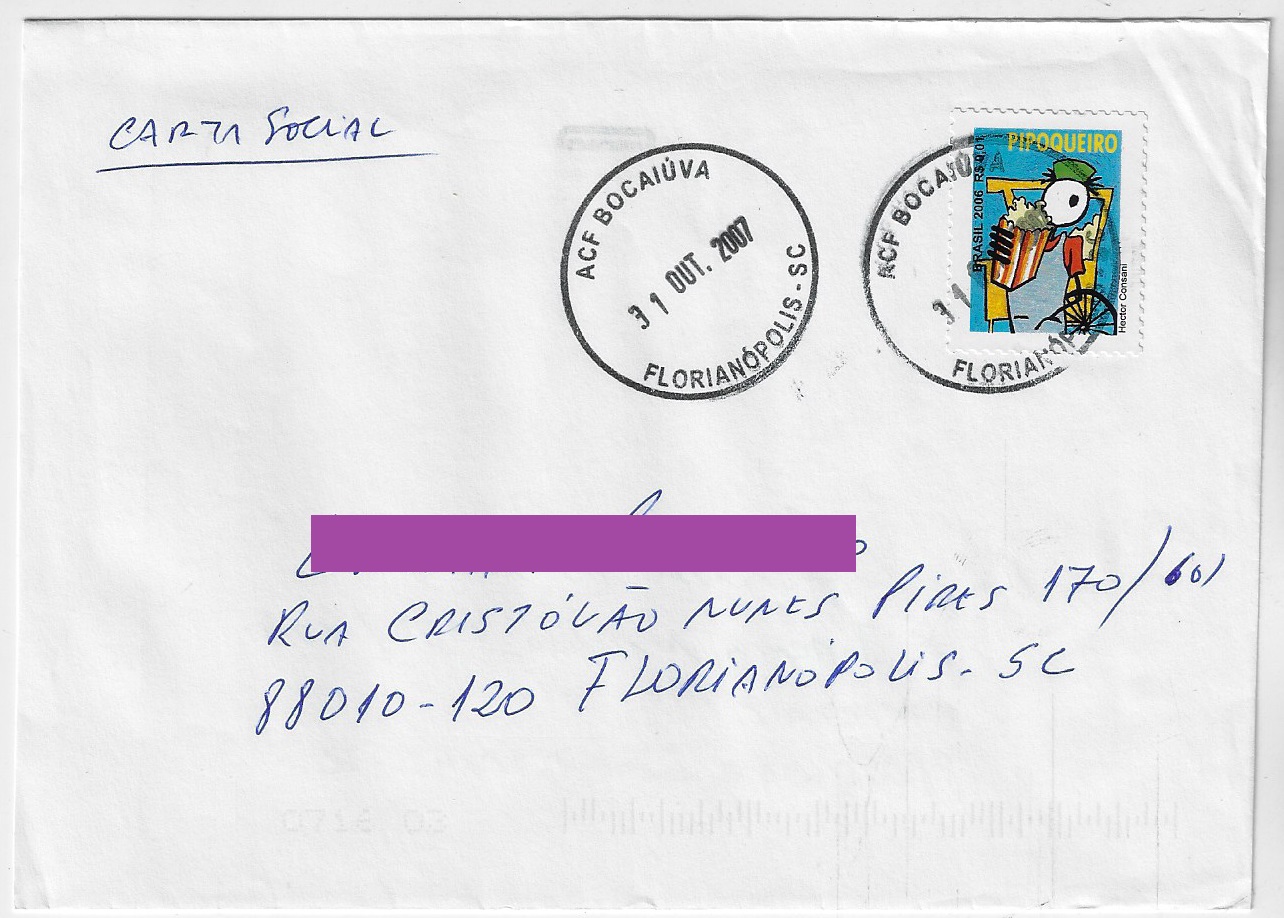 CARTA SOCIAL
ACF BOCAIÚVA
31 OUT. 2007
FLORIANÓPOLIS - SC
ACF BOCAIÚ
31
FLORIANÓP
PIPOQUEIRO
BRASIL 2006 R$ 0,01
Hector Consani
RUA CRISTÓVÃO NUNES PIRES 170/601
88010-120 FLORIANÓPOLIS - SC